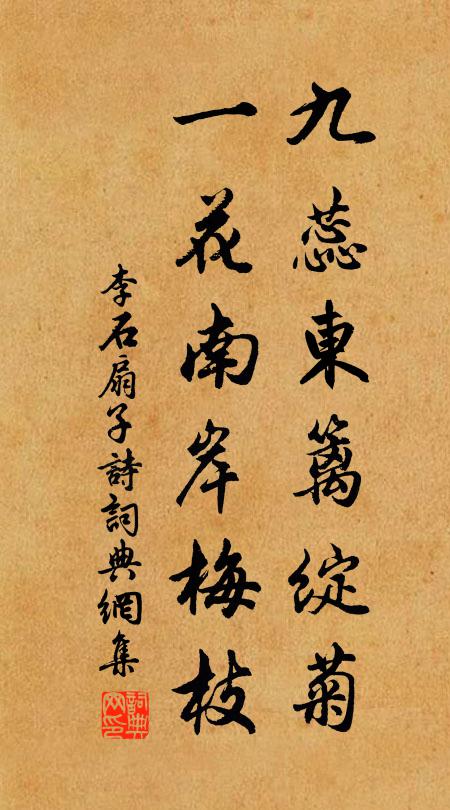 九蕊東籬綻菊
一花南岸梅枝
李石扇子詩詞典網集
詞典
网印